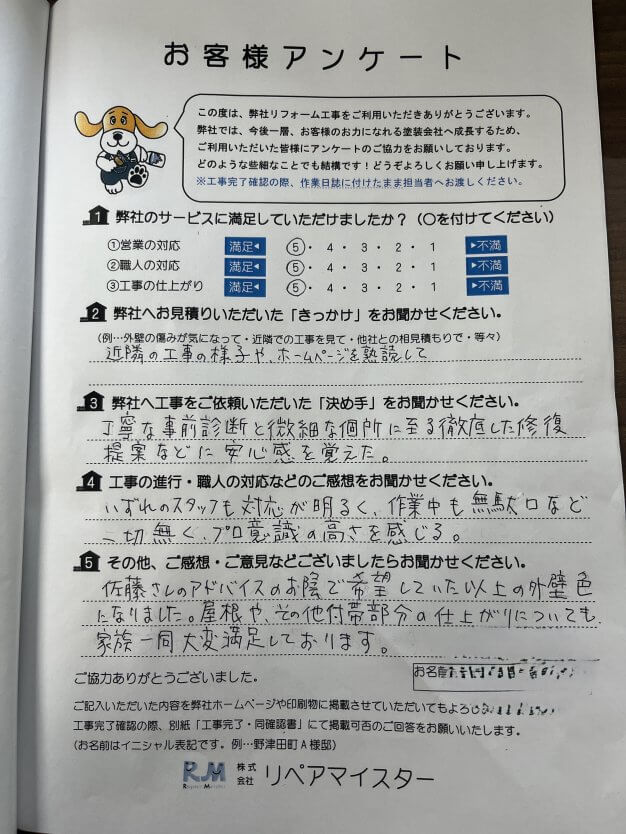 お客様アンケート
この度は、弊社リフォーム工事をご利用いただきありがとうございます。
弊社では、今後一層、お客様のお力になれる塗装会社へ成長するため、
ご利用いただいた皆様にアンケートのご協力をお願いしております。
どのような些細なことでも結構です！どうぞよろしくお願い申し上げます。
※工事完了確認の際、作業日誌に付けたまま担当者へお渡しください。
1 弊社のサービスに満足していただけましたか？（○を付けてください）
①営業の対応 満足◀ 5・4・3・2・1 ▶不満
②職人の対応 満足◀ 5・4・3・2・1 ▶不満
③工事の仕上がり 満足◀ 5・4・3・2・1 ▶不満
2 弊社へお見積りいただいた「きっかけ」をお聞かせください。
（例…外壁の傷みが気になって・近隣での工事を見て・他社との相見積もりで・等々）
近隣の工事の様子や、ホームページを熟読して
3 弊社へ工事をご依頼いただいた「決め手」をお聞かせください。
丁寧な事前診断と微細な個所に至る徹底した修復
提案などに安心感を覚えた。
4 工事の進行・職人の対応などのご感想をお聞かせください。
いずれのスタッフも対応が明るく、作業中も無駄口など
一切無く、プロ意識の高さを感じる。
5 その他、ご感想・ご意見などございましたらお聞かせください。
佐藤さんのアドバイスのお陰で希望していた以上の外壁色
になりました。屋根や、その他付帯部分の仕上がりについても
家族一同大変満足しております。
ご協力ありがとうございました。
お名前
ご記入いただいた内容を弊社ホームページや印刷物に掲載させていただいてもよろ
工事完了確認の際、別紙「工事完了・同確認書」にて掲載可否のご回答をお願いいたします。
（お名前はイニシャル表記です。例…野津田町A様邸）
RM Repair Meister 株式会社 リペアマイスター